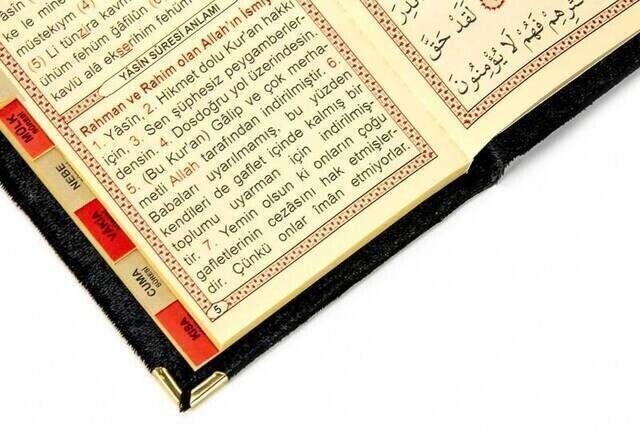 ke le mine
müstekıym (4)
(5) Li tünzira kavmen
ühüm fehüm gâfilûn
kavlü alâ ekserihim fehüm
YASİN SURESİ ANLAMI
Rahman ve Rahim olan Allah'ın İsmiy
1. Yâsîn. 2. Hikmet dolu Kur'an hakkı
için. 3. Sen şüphesiz peygamberler-
densin. 4. Dosdoğru yol üzerindesin.
5. (Bu Kur'an) Galip ve çok merha-
metli Allah tarafından indirilmiştir. 6.
Babaları uyarılmamış, bu yüzden
kendileri de gaflet içinde kalmış bir
toplumu uyarman için indirilmiş-
tir. 7. Yemin olsun ki onların çoğu
gafletlerinin cezasını hak etmişler-
dir. Çünkü onlar îmân etmiyorlar.
5
لَقَدْ حَقَّ
فَهُمْ لَا يُؤْمِنُونَ
MÜLK
SURESİ
NEBE
VAKIA
SURESİ
CUMA
SURESİ
KISA